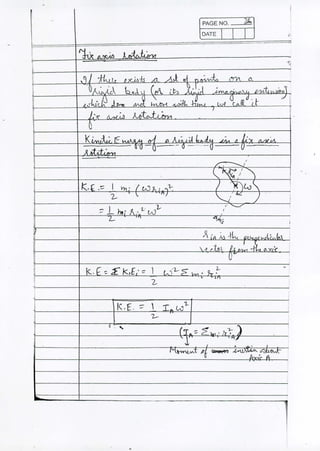 PAGE NO. 36
DATE
Fix axis Rotation
If there exists a set of points on a
Rigid body (or its rigid imaginary extension)
which does not move with time, we call it
fix axis rotation.
Kinetic Energy of a Rigid body in a fix axis
Rotation
K.E. = 1/2 mi (ω riA)²
= 1/2 mi riA² ω²
ω
riA is the perpendicular
vector from the axis.
K.E = Σ K.Ei = 1/2 ω² Σ mi riA²
K.E. = 1/2 IA ω²
(IA = Σ mi riA²)
Moment of inertia about
Axis A.